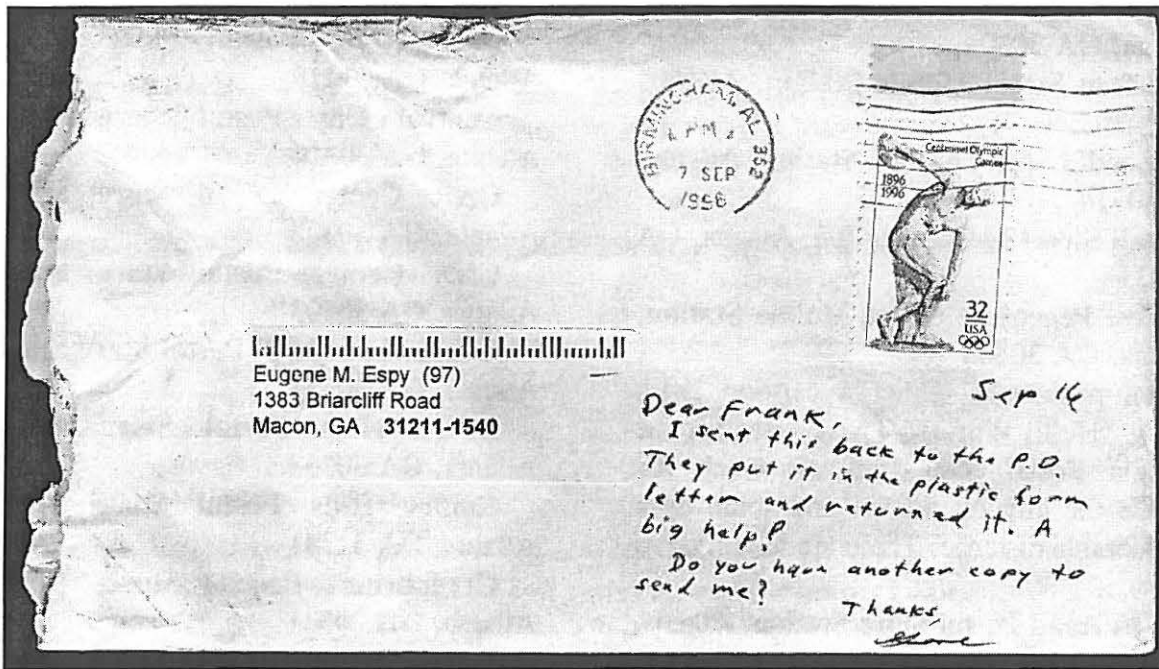 BIRMINGHAM, AL 352
PM
7 SEP
1996
Centennial Olympic
Games
1896
1996
32
USA
Eugene M. Espy (97)
1383 Briarcliff Road
Macon, GA 31211-1540
Sep 16
Dear Frank,
I sent this back to the P.O.
They put it in the plastic form
letter and returned it. A
big help!
Do you have another copy to
send me?
Thanks,